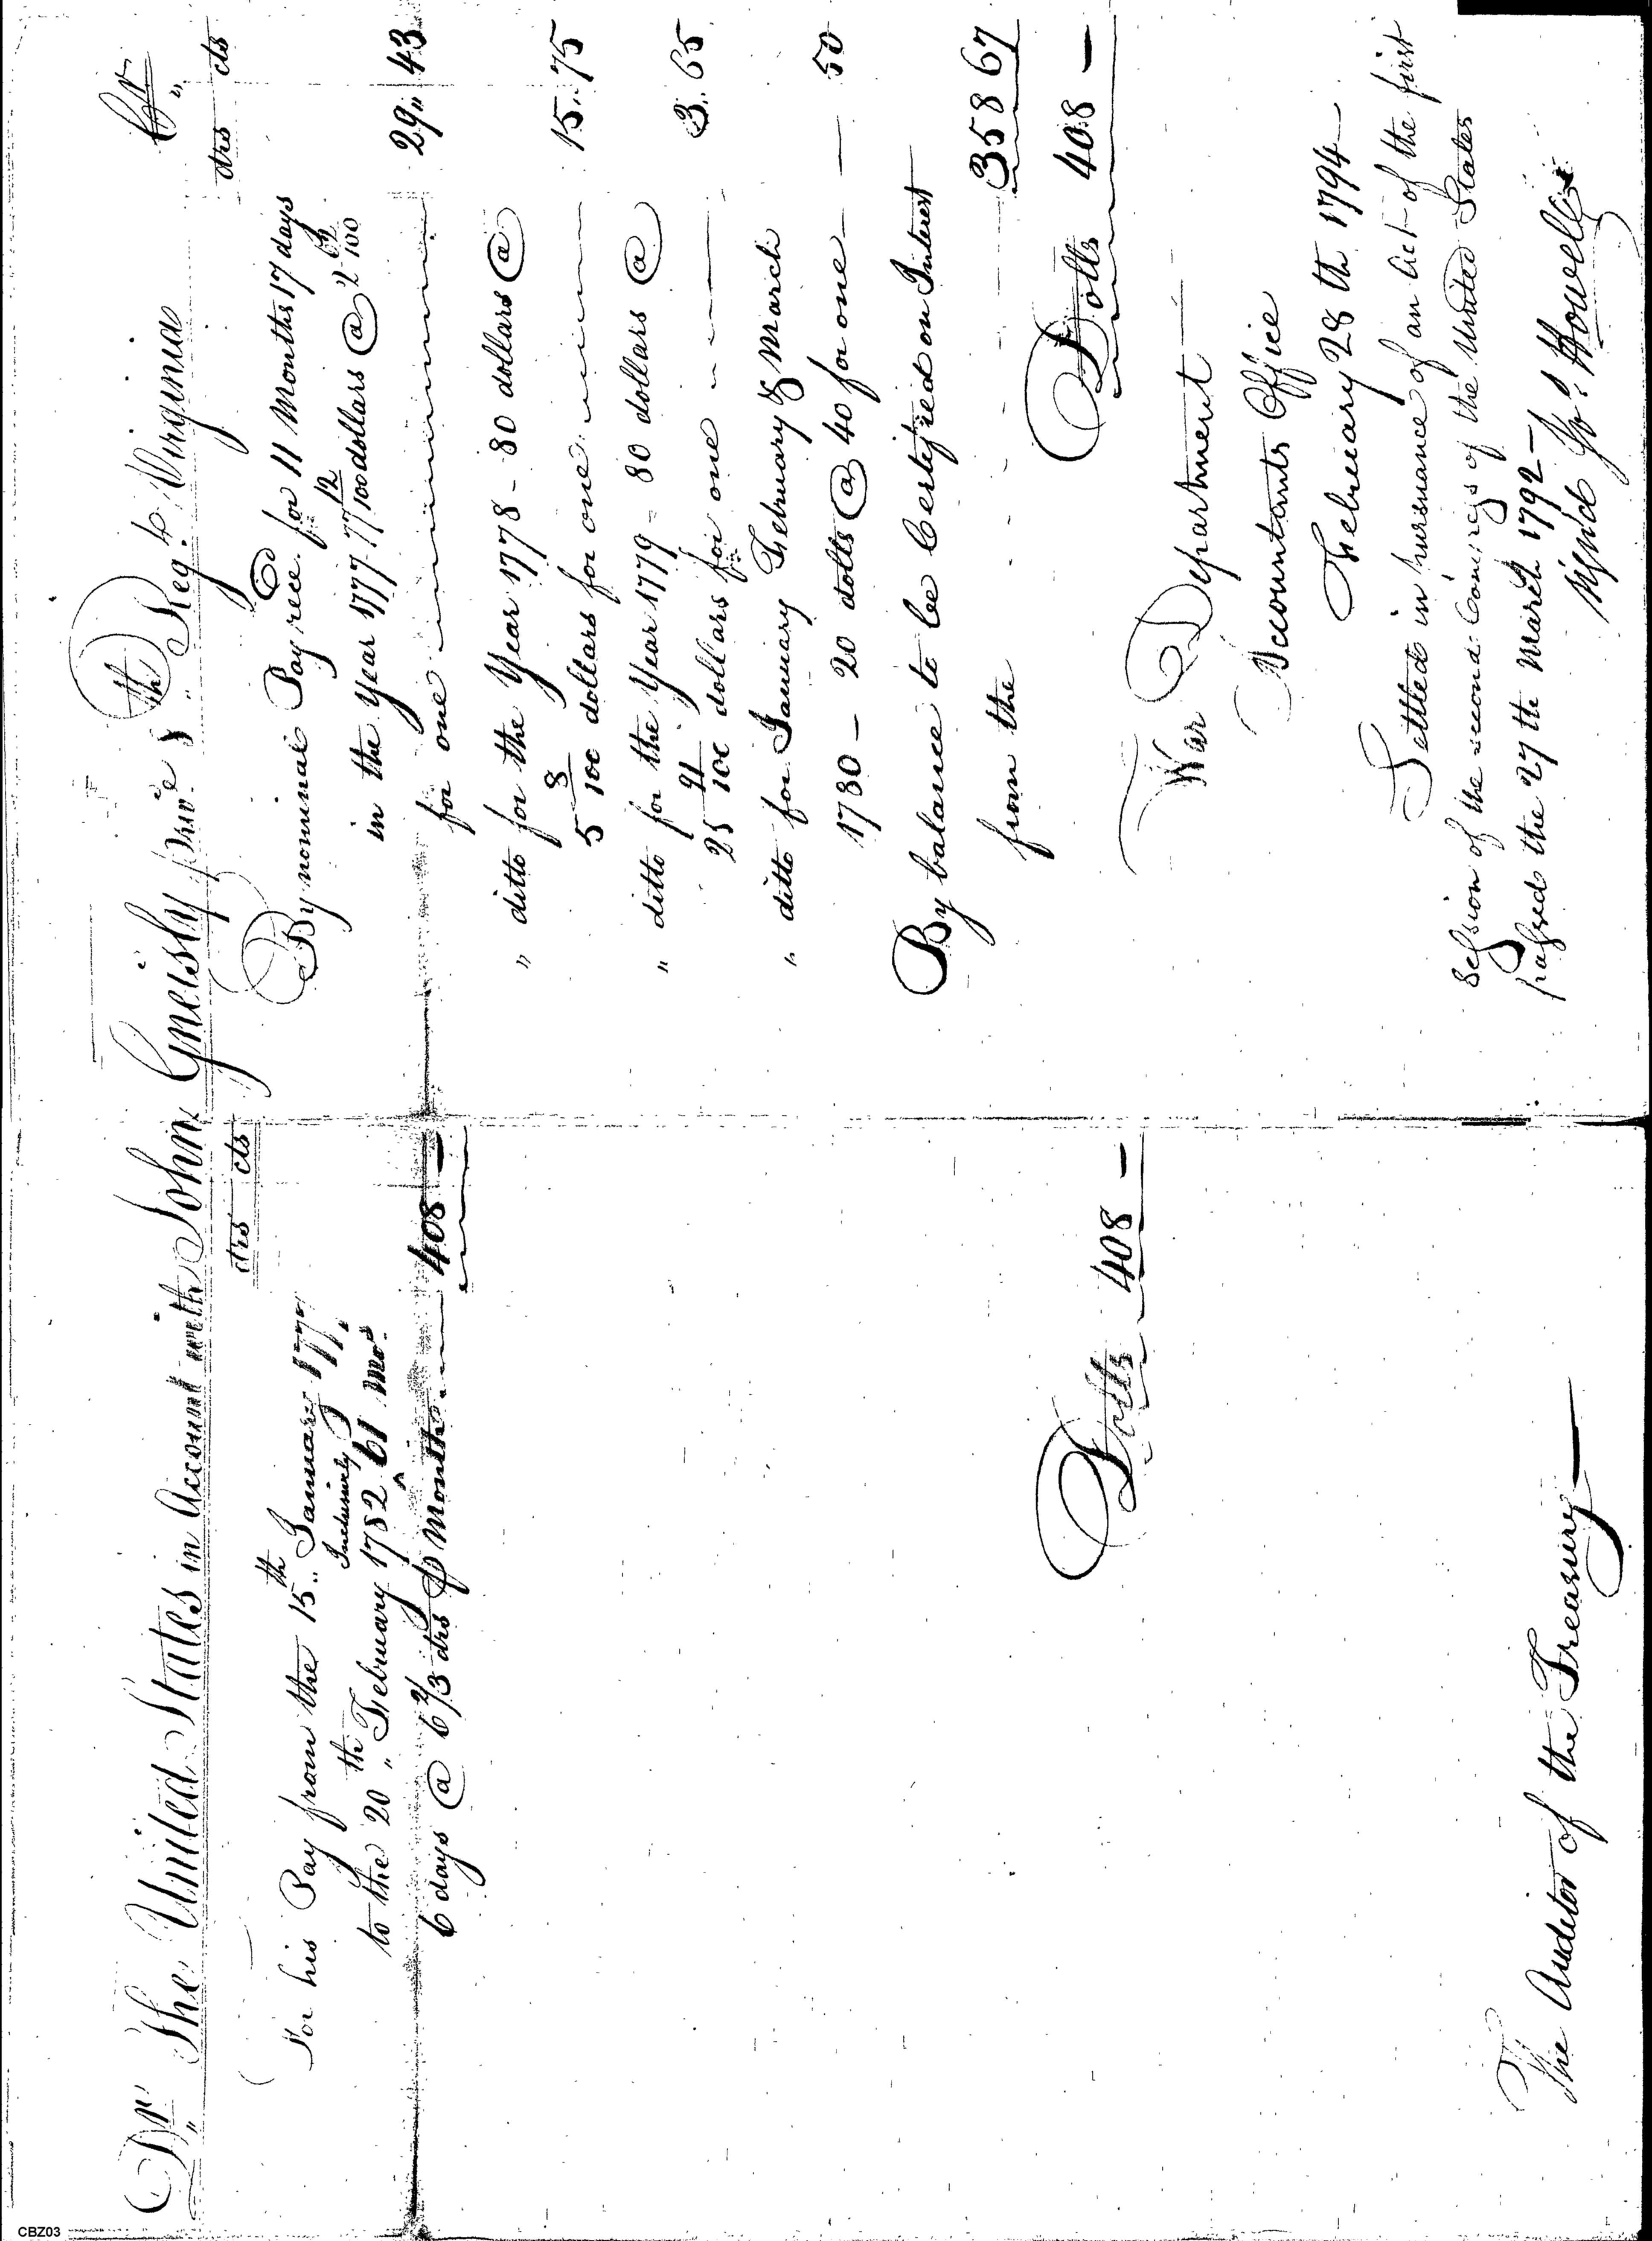 Dr The United States in Account with John Gneisly priv.e 8th Reg.t Virginia Cr
drs cts
For his Pay from the 15th January 1777
Inclusively
to the 20th February 1782 61 mos
6 days @ 6 2/3 drs p Month 408 —
Dolls 408 —
The Auditor of the Treasury —
drs cts
By nominal Pay rec.d for 11 Months 17 days
in the Year 1777. 77 12/100 dollars @ 2 62/100
for one 29,, 43
" ditto for the Year 1778 - 80 dollars @
5 8/100 dollars for one 15.. 75
" ditto for the Year 1779 - 80 dollars @
25 91/100 dollars for one 3.. 65
" ditto for January February & March
1780 - 20 dolls @ 40 for one — 50
By balance to be Certified on Interest
from the 358 67
Dolls 408 —
War Department
Accountants Office
February 28 th 1794 —
Settled in pursuance of an Act of the first
session of the second Congress of the United States
passed the 27 th March 1792 —
signed Jo.s Howell
CBZ03